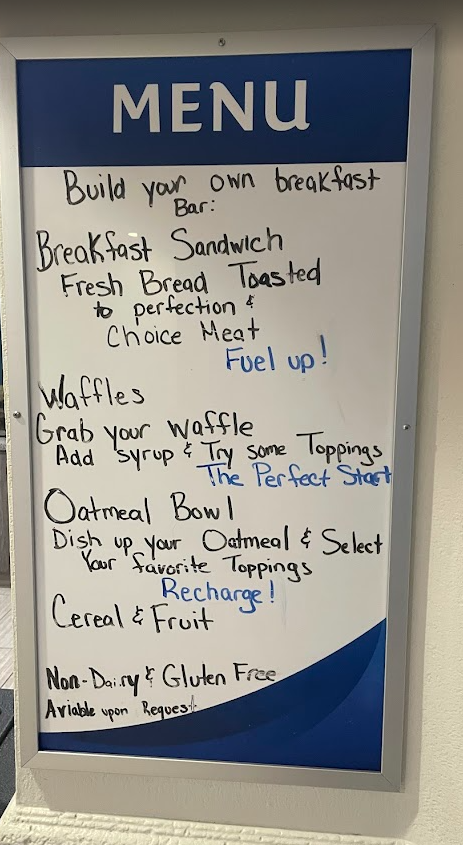 MENU
Build your own breakfast
Bar:
Breakfast Sandwich
Fresh Bread Toasted
to perfection &
Choice Meat
Fuel up!
Waffles
Grab your waffle
Add syrup & Try some Toppings
The Perfect Start
Oatmeal Bowl
Dish up your Oatmeal & Select
Your favorite Toppings
Recharge!
Cereal & Fruit
Non-Dairy & Gluten Free
Aviable upon Request